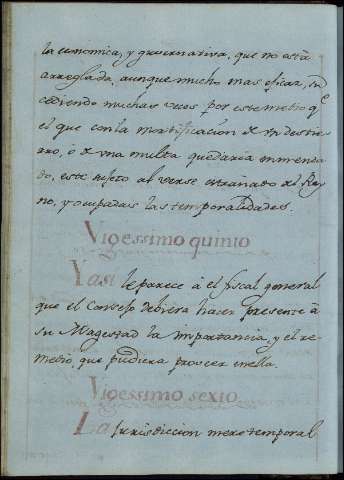 la economica, y governativa, que no está
arreglada, aunque mucho mas eficaz, su
cediendo muchas veces por este medio qe
el que con la mortificacion de un destier
ro, o de una multa quedaria enmenda
do, este sujeto al verse extrañado del Rey
no, y ocupadas las temporalidades.
Vigessimo quinto
Yasi le parece à el fiscal general
que el Consejo debiera hacer presente à
su Magestad la importancia, y el re-
medio, que pudiera proveer en ella.
Vigessimo sexto
La Jurisdiccion mero temporal